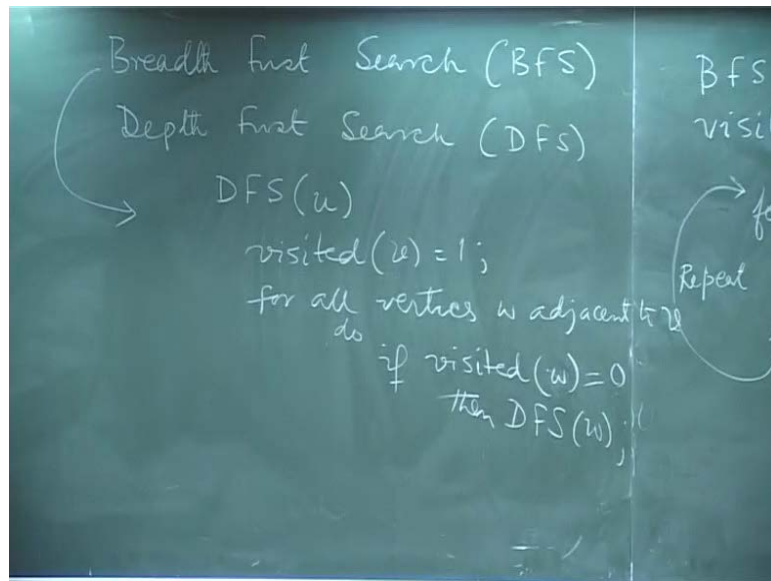 Breadth First Search (BFS)
Depth First Search (DFS)
DFS(u)
visited(v) = 1;
for all vertices w adjacent to v
do
if visited(w) = 0
then DFS(w);
BFS
Repeat